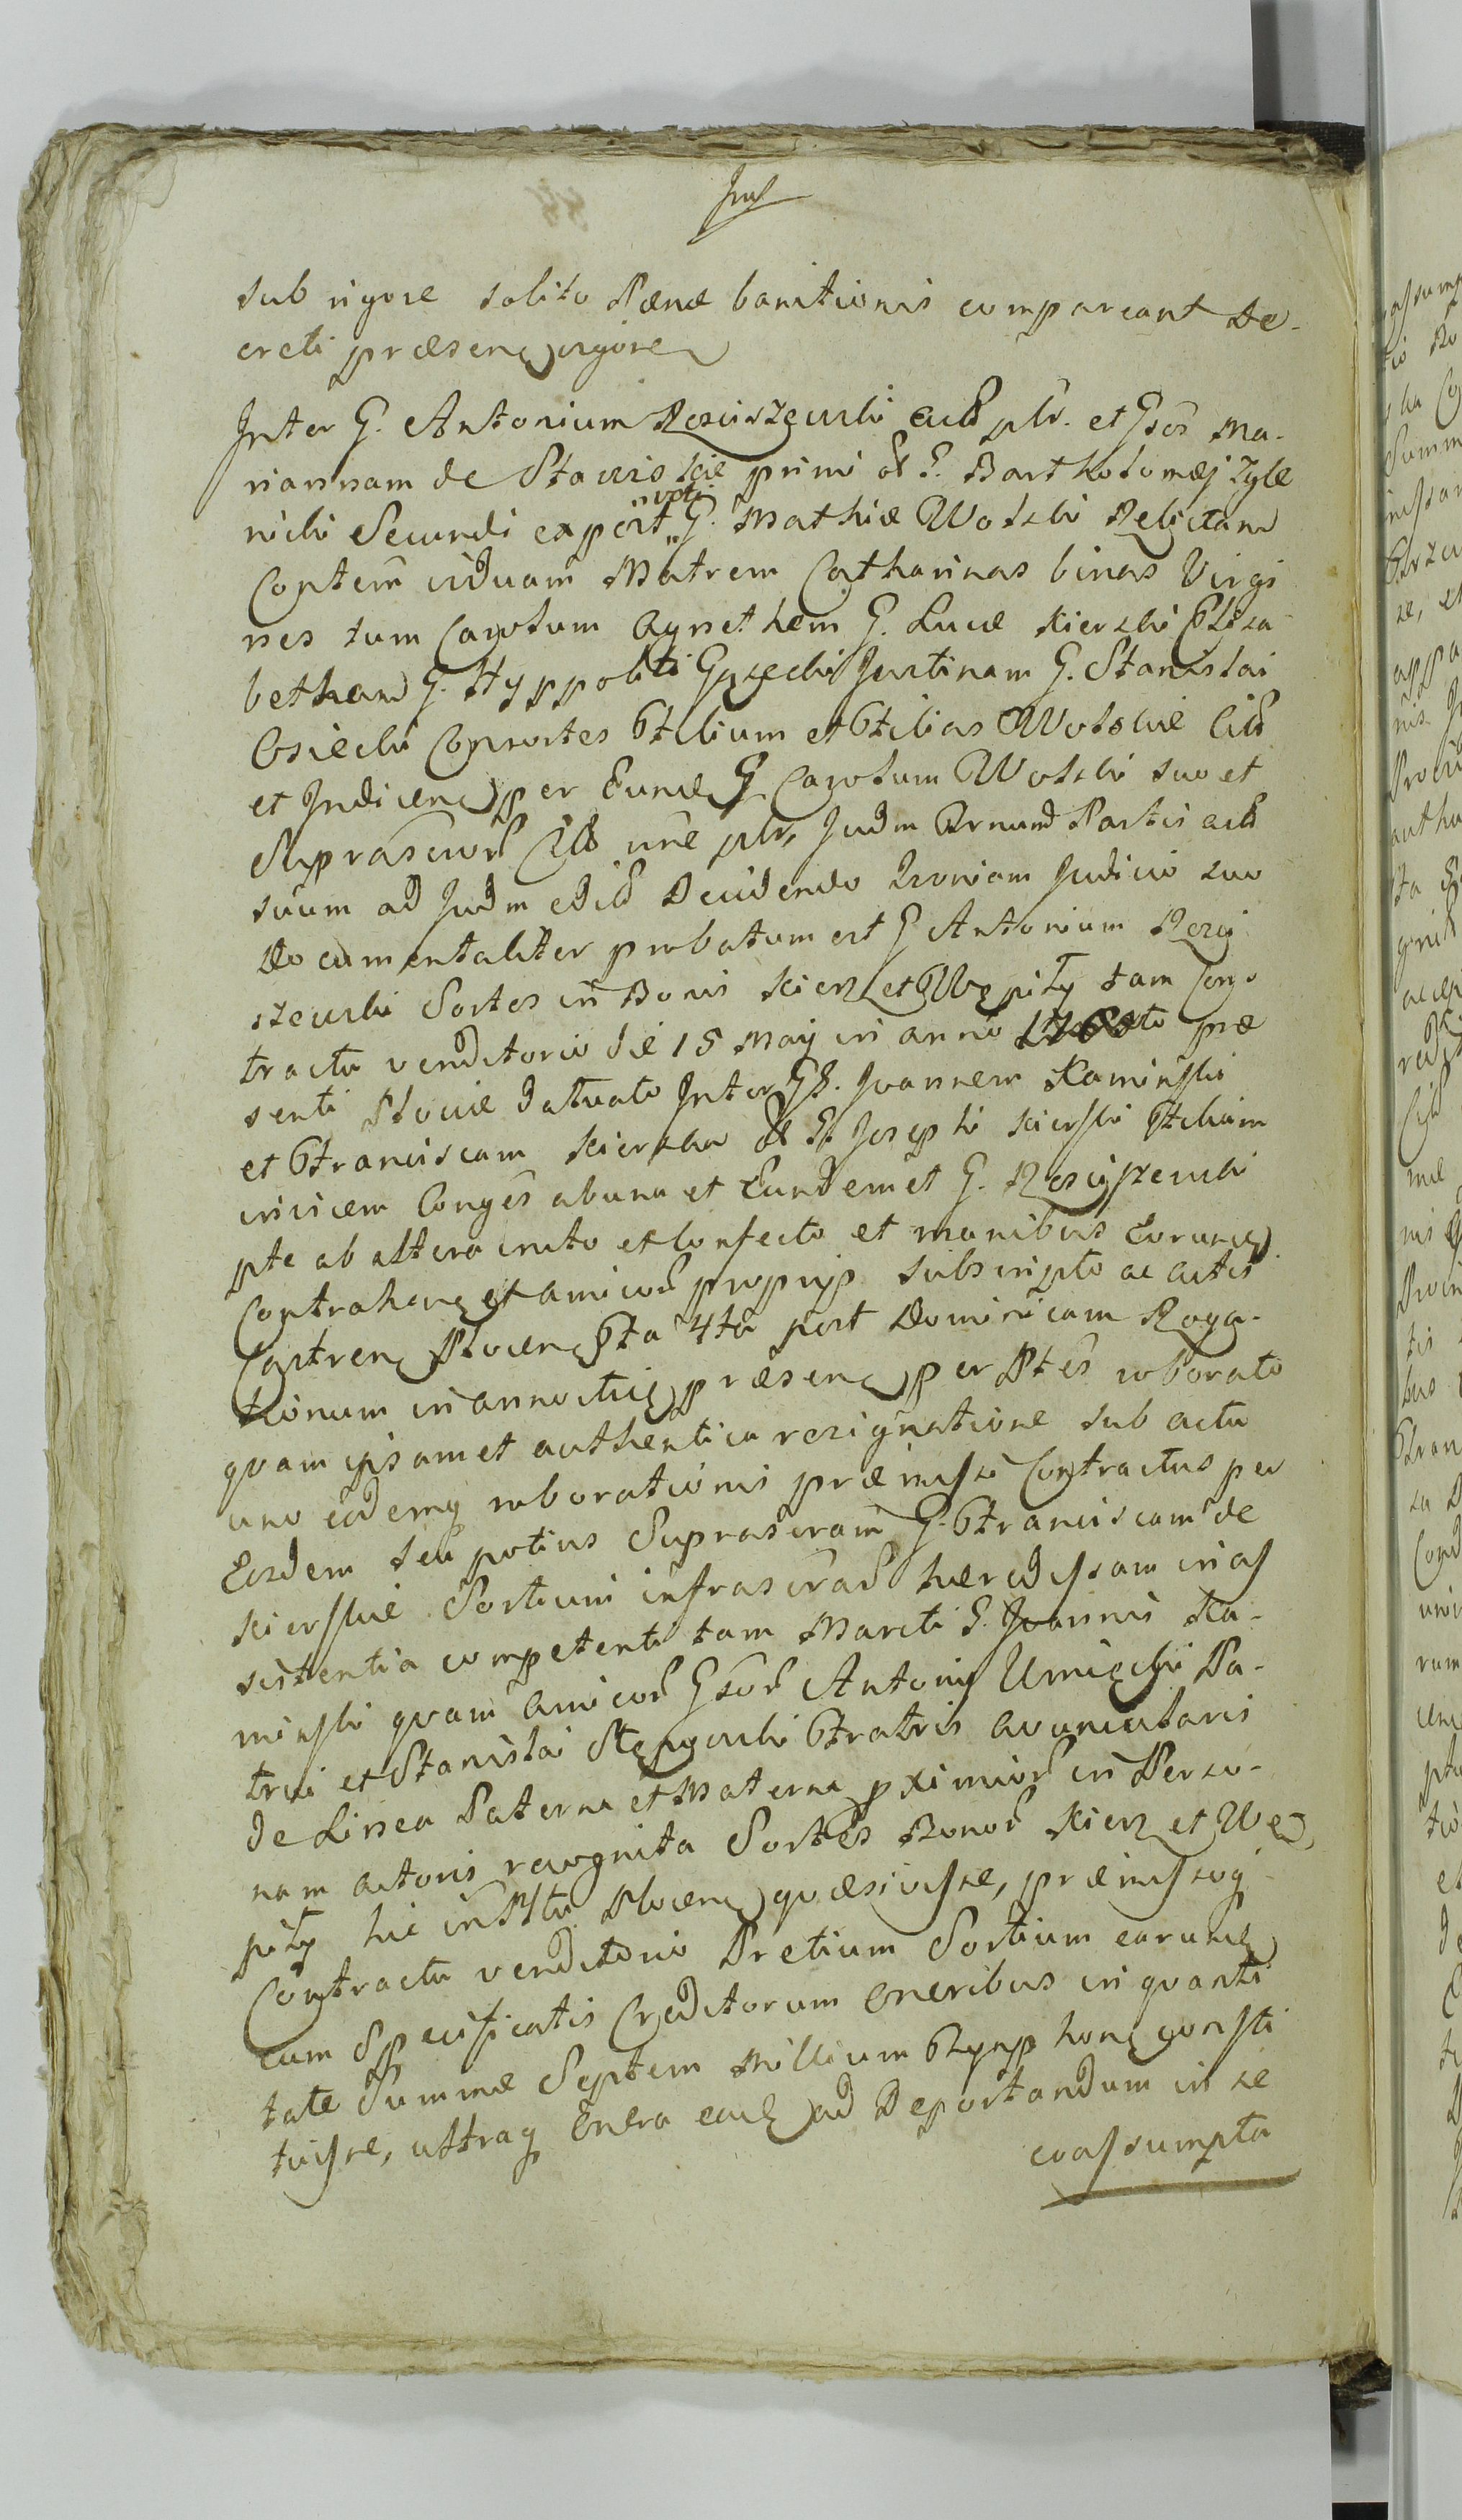 sub rigore solito Pænæ banitionis compareant De-
creti præsen vigore
Inter G. Antonium Rosciszewski et Gsos Ma-
riannam de Stawiskie primi Bartholomæi Zyle
voti
nicki Secundi expost G. Mathiæ Wolski Relictam
viduam Matrem Catharinas binas Virgi
nes tum Carolum Agnethem G. Lucæ Kierski Eliza-
betham G. Hyppoliti Gyzecki Justinam G. Stanislai
Osiecki Consortes Filium et Filias Wolskie
et Indicen per Eund G Carolum Wolski suo et
Suprascrior nne Judm Partis
suum ad Judm Decidendo Judicio suo
Documentaliter probatum est G Antonium Rosci
szewski Sortes in Bonis Kierz et Wępiły tam Con
tractu venditorio die 15 Maij in anno præ
senti Plociæ datuato Inter GG. Joannem Kaminski
et Franciscam Kierska G. Josephi Kierski Filiam
invicem Conges ab una et Eundemet G. Rosciszewski
pte ab altera inito et confecto et manibus Eorund
Contrahen et amicor proprijs subscripto ac actis
Castren Plocen 4ta post Dominicam Roga-
tionum in anno præsen per Ptes roborato
quam ipsamet authentica resignatione sub actu
uno eodemq roborationis præmissi Contractus per
Eosdem seu potius Suprascram G. Franciscam de
Kierskie Sortium infrascrar hæredissam in as
sistentia competenti tam Mariti G. Joannis Ka-
minski quam Amicor Gsor Antonij Umięcki Pa-
trui et Stanislai Fratris avuncularis
de Linea Paterna et Materna pximior in Perso-
nam actoris recognita Sortes Bonor Kierz et Wę
piły hic in Plocen quæsivisse, præmissoq
Contractu venditorio Pretium Sortium earund
cum Specificatis Creditorum Oneribus in quanti
tate Summæ Septem Millium consti
tuisse, ultraq Onera ead ad Deportandum in se
coassumpta